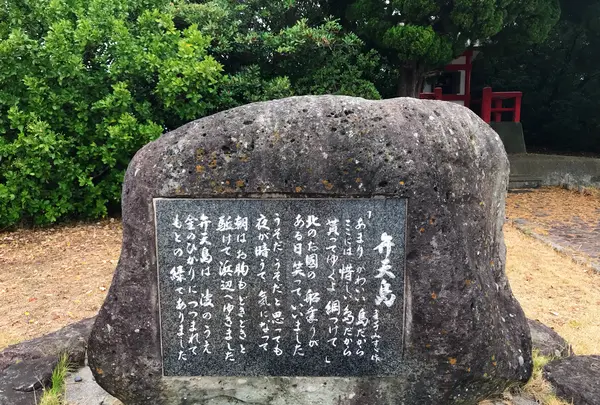 弁天島
金子みすゞ作
「あまりかわいい島だから
ここには惜しい島だから
貰ってゆくよ 綱つけて。」
北のお国の船乗りが
ある日 笑っていいました
うそだ うそだと思っても
夜が暗うて 気になって
朝はお胸もどきどきと
駈けて浜辺へゆきました
弁天島は 波のうえ
金のひかりにつつまれて
もとの緑でありました